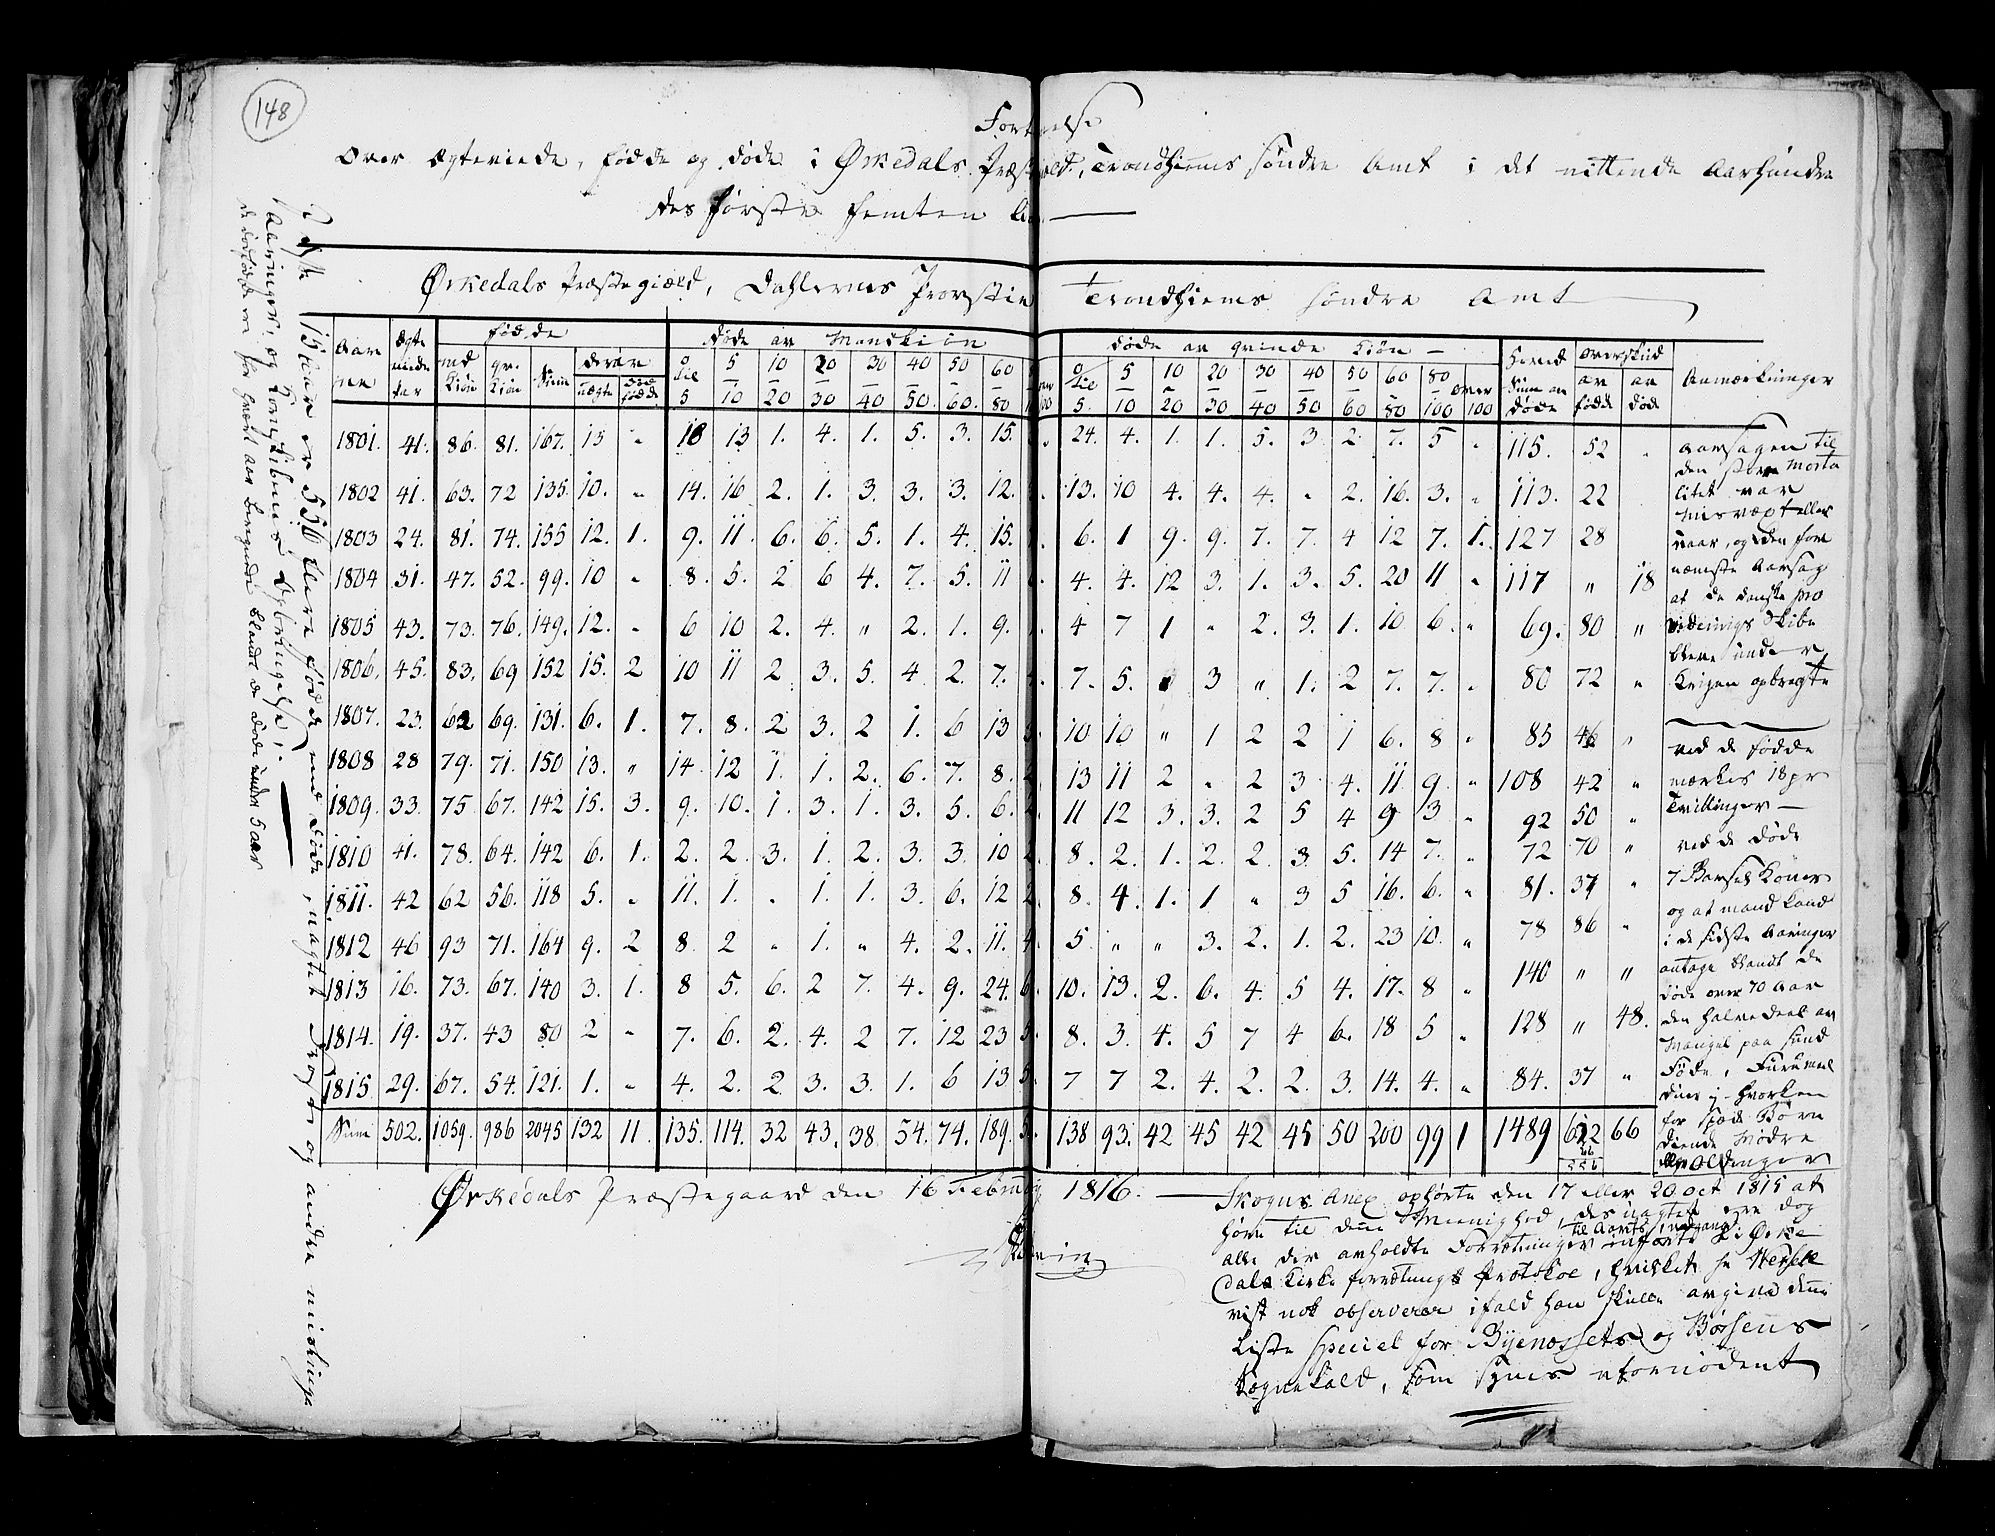 148
over Ægteviede, fødde og døde i Ørkedals Præstegield, Trondhiems søndre Amt i det nittende Aarhundre
des første femten Aar
Ørkedals Præstegiæld, Dahlernes Provstie Trondhiems søndre Amt
Aar Ægteviede Par fødde Døde av Mandkiøn Døde av qvinde Kiøn Hoved Sum av døde overskud Anmærkninger
mdkiøn qv. Kiøn Sum derav uægte død fødde 0 til 5 5 – 10 10 – 20 20 – 30 30 – 40 40 – 50 50 – 60 60 – 80 0 til 5 5 – 10 10 – 20 20 – 30 30 – 40 40 – 50 50 – 60 60 – 80 80 – 100 over 100 av fødde av død
1801. 41. 86. 81. 167. 13 „ 18 13 1. 4. 1. 5. 3. 15. 24. 4. 1. 1. 5. 3 2. 7. 5 „ 115. 52 „
1802 41. 63. 72 135. 10. „ 14. 16 2. 1. 3. 3. 3. 12. 13. 10 4. 4. 4. „ 2. 16. 3. „ 113. 22
1803 24. 81. 74. 155 12. 1. 9. 11. 6. 6. 5. 1. 4. 15. 6. 1 9. 9. 7. 7. 4 12 7. 1. 127 28
1804 31. 47. 52. 99. 10 „ 8. 5. 2 6 4. 7. 5. 11 4. 4. 12 3. 1. 3. 5. 20 11 „ 117 „ 18
1805 43. 73. 76. 149. 12. „ 6 10 2. 4. „ 2. 1. 9. 4 7 1 „ 2. 3. 1. 10 6. „ 69. 80 „
1806. 45. 83. 69 152 15. 2 10 11 2 3. 5. 4 2. 7. 7. 5. 3 „ 1. 2 7. 7. „ 80 72 „
1807. 23 62 69. 131. 6. 1. 7. 8. 2 3. 2 1. 6 13 10 10 „ 1 2 2 1 6. 8 „ 85 46 „
1808 28 79. 71. 150 13. „ 14. 12 1. 1. 2. 6. 7. 8. 13 11 2 „ 2 3 4. 11 9. „ 108 42 „
1809. 33. 75 67. 142 15. 3. 9. 10. 1 3. 1. 3. 5. 6. 11 12 3. 3. 2 5 4 9 3 „ 92 50 „
1810 41. 78. 64. 142 6. 1. 2. 2. 3. 1. 2. 3. 3. 10 8. 2. 1. 2. 2. 3. 5. 14 7. „ 72 70 „
1811. 42 62 56. 118 5. „ 11. 1. „ 1. 1. 3 6. 12 8. 4. 1. 1 „ 3 5 16. 6. „ 81. 37 „
1812 46 93 71. 164 9. 2 8. 2 „ 1. „ 4. 2. 11. 5 „ „ 3. 2. 1. 2. 23 10. „ 78 86 „
1813 16. 73. 67. 140 3. 1. 8 5. 6. 2 7. 4. 9. 24. 10. 13. 2. 6. 4. 5 4. 17. 8 „ 140 „ „
1814. 19. 37. 43 80 2 „ 7. 6. 2. 4. 2 7. 12 23 8. 3. 4. 5 7 4 6. 18 5 „ 128 „ 48.
1815 29. 67. 54. 121. 1. „ 4. 2. 2 3. 3. 1. 6 13 7 7 2. 4. 2. 2. 3. 14. 4. „ 84. 37 „
Sum 502. 1059. 986 2045 132 11. 135. 114. 32 43. 38. 54. 74. 189. 138 93. 42 45 42 45 50 200 99 1 1489 622 66
66
556
Aarsagen til
den store Morta
litet var
Misvæxt eller
uaar, og den for
nemste Aarsag
at de danske pro
viderings Skibe
bleve under
Krigen opbragte
ved de fødde
mærkes 18 pr
Tvillinger —
ved de døde
7 Barsel Koner
og at mand kand
i de sidste Aaringer
antage blandt de
døde over 70 Aar
den halve Deel av
Mangel paa sund
Føde,
for spæde Børn
diende Mødre
eller Oldinger
Ørkedals Præstegaard den 16 February 1816.
Skogns Anex ophørte den 17 eller 20 oct 1815 at
høre til denne Meenighed, des uagtet ere dog
alle der avholdte Forretninger til Aarets udgang indførte i Ørke
dals Kirke forretnings Protokol, hvilket hr
vist nok observerer ifald han skulle avgive denne
Liste speciel for Byenæssets og Børsens
Sognekald, som synes ufornødent
15 Aar er 556 flere fødde end døde, uagtet Krigen og andre mislige
Aaringer, og Korn Skibenes Opbringelse!
de dødfødde ere for hvert aar beregnede blandt de døde under 5 aar